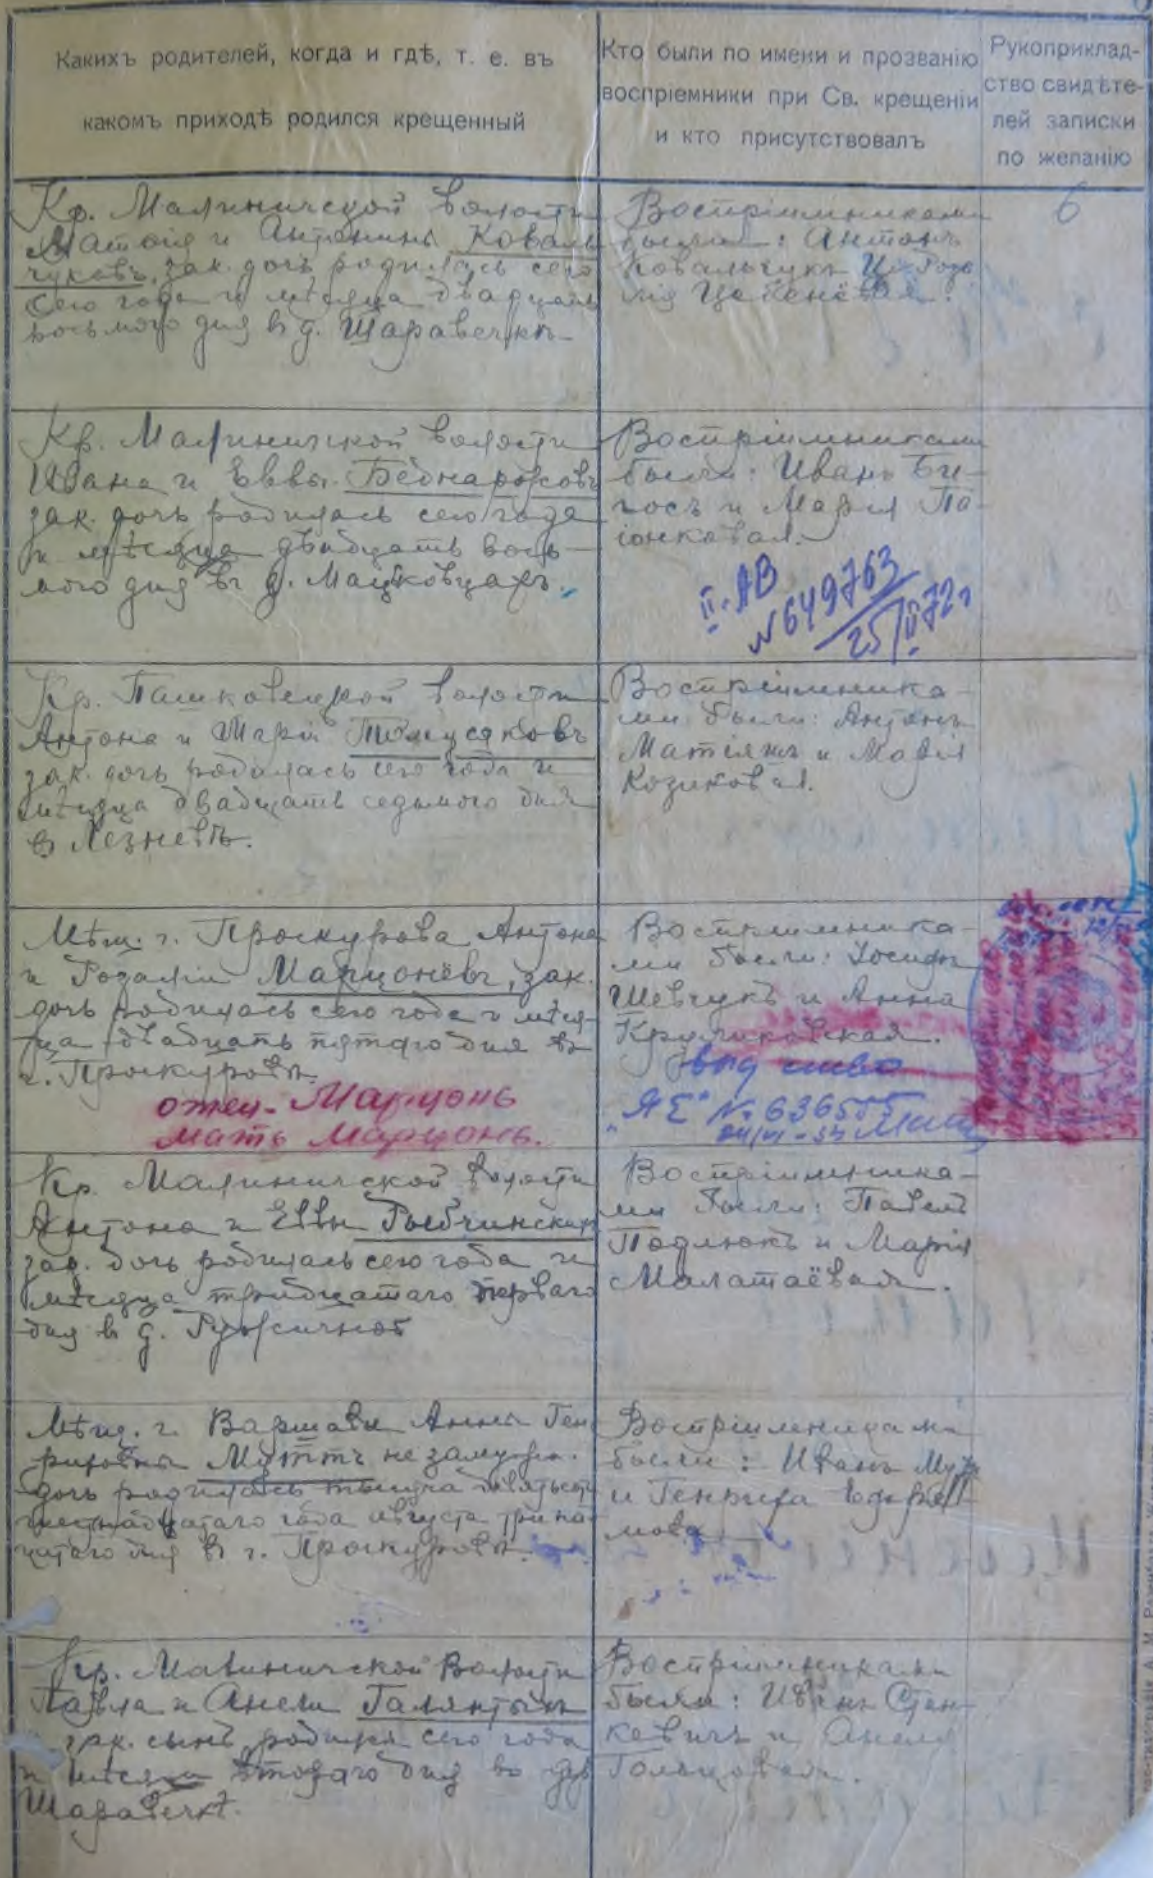 Какихъ родителей, когда и гдѣ, т. е. въ
какомъ приходѣ родился крещенный
Кто были по имени и прозванію
воспріемники при Св. крещеніи
и кто присутствовалъ
Рукоприклад-
ство свидѣте-
лей записки
по желанію
Кр. Малиничской волости
Матвія и Антонины Коваль
чуковъ, зак. дочь родилась сего
сего года и мѣсяца двадцать
восьмого дня в д. Шаравечкѣ
Воспріемниками
были: Антонъ
Ковальчукъ и Роза
лія
6
Кр. Малиничской волости
Ивана и Еввы Беднарожовъ
зак. дочь родилась сего года
и мѣсяца двадцать вось-
мого дня въ д. Мацковцахъ.
Воспріемниками
были: Иванъ Би-
госъ и Марія Па-
іонковая.
II-АВ
№649763
25/II 72г
Кр. Пашковецкой волости
Антона и Маріи Томусяковъ
зак. дочь родилась сего года и
мѣсяца двадцать седьмого дня
в Лезневѣ.
Воспріемника-
ми были: Антонъ
Матіяшъ и Марія
Козиковая.
Мѣщ. г. Проскурова Антона
и Розаліи Марцонёвъ, зак.
дочь родилась сего года и мѣся-
ца двадцать пятаго дня въ
г. Проскуровѣ.
отец - Марцонь
мать Марцонь.
Воспріемника-
ми были: Іосифъ
Шевчукъ и Анна
Круликовская.
"ЯЕ" №
Кр. Малиничской волости
Антона и Еввы Рыбчинских
зак. дочь родилась сего года и
мѣсяца тридцатаго перваго
дня в д. Ружичной
Воспріемника-
ми были: Павелъ
Подлюкъ и Марія
Малатаёвая.
Мѣщ. г. Варшавы Анны Ген
риховны Муттъ незамужн.
дочь родилась тысяча девятьсотъ
шестнадцатаго года августа трина
цатаго дня в г. Проскуровѣ.
Воспріемниками
были: Иванъ
и Генриха
Кр. Малиничской Волости
Павла и Анели Галянтыхъ
зак. сынъ родился сего года
и мѣсяца второго дня въ дер
Шаравечкѣ.
Воспріемниками
были: Иванъ Стан-
кевичъ и Анеля
Гольцовая.